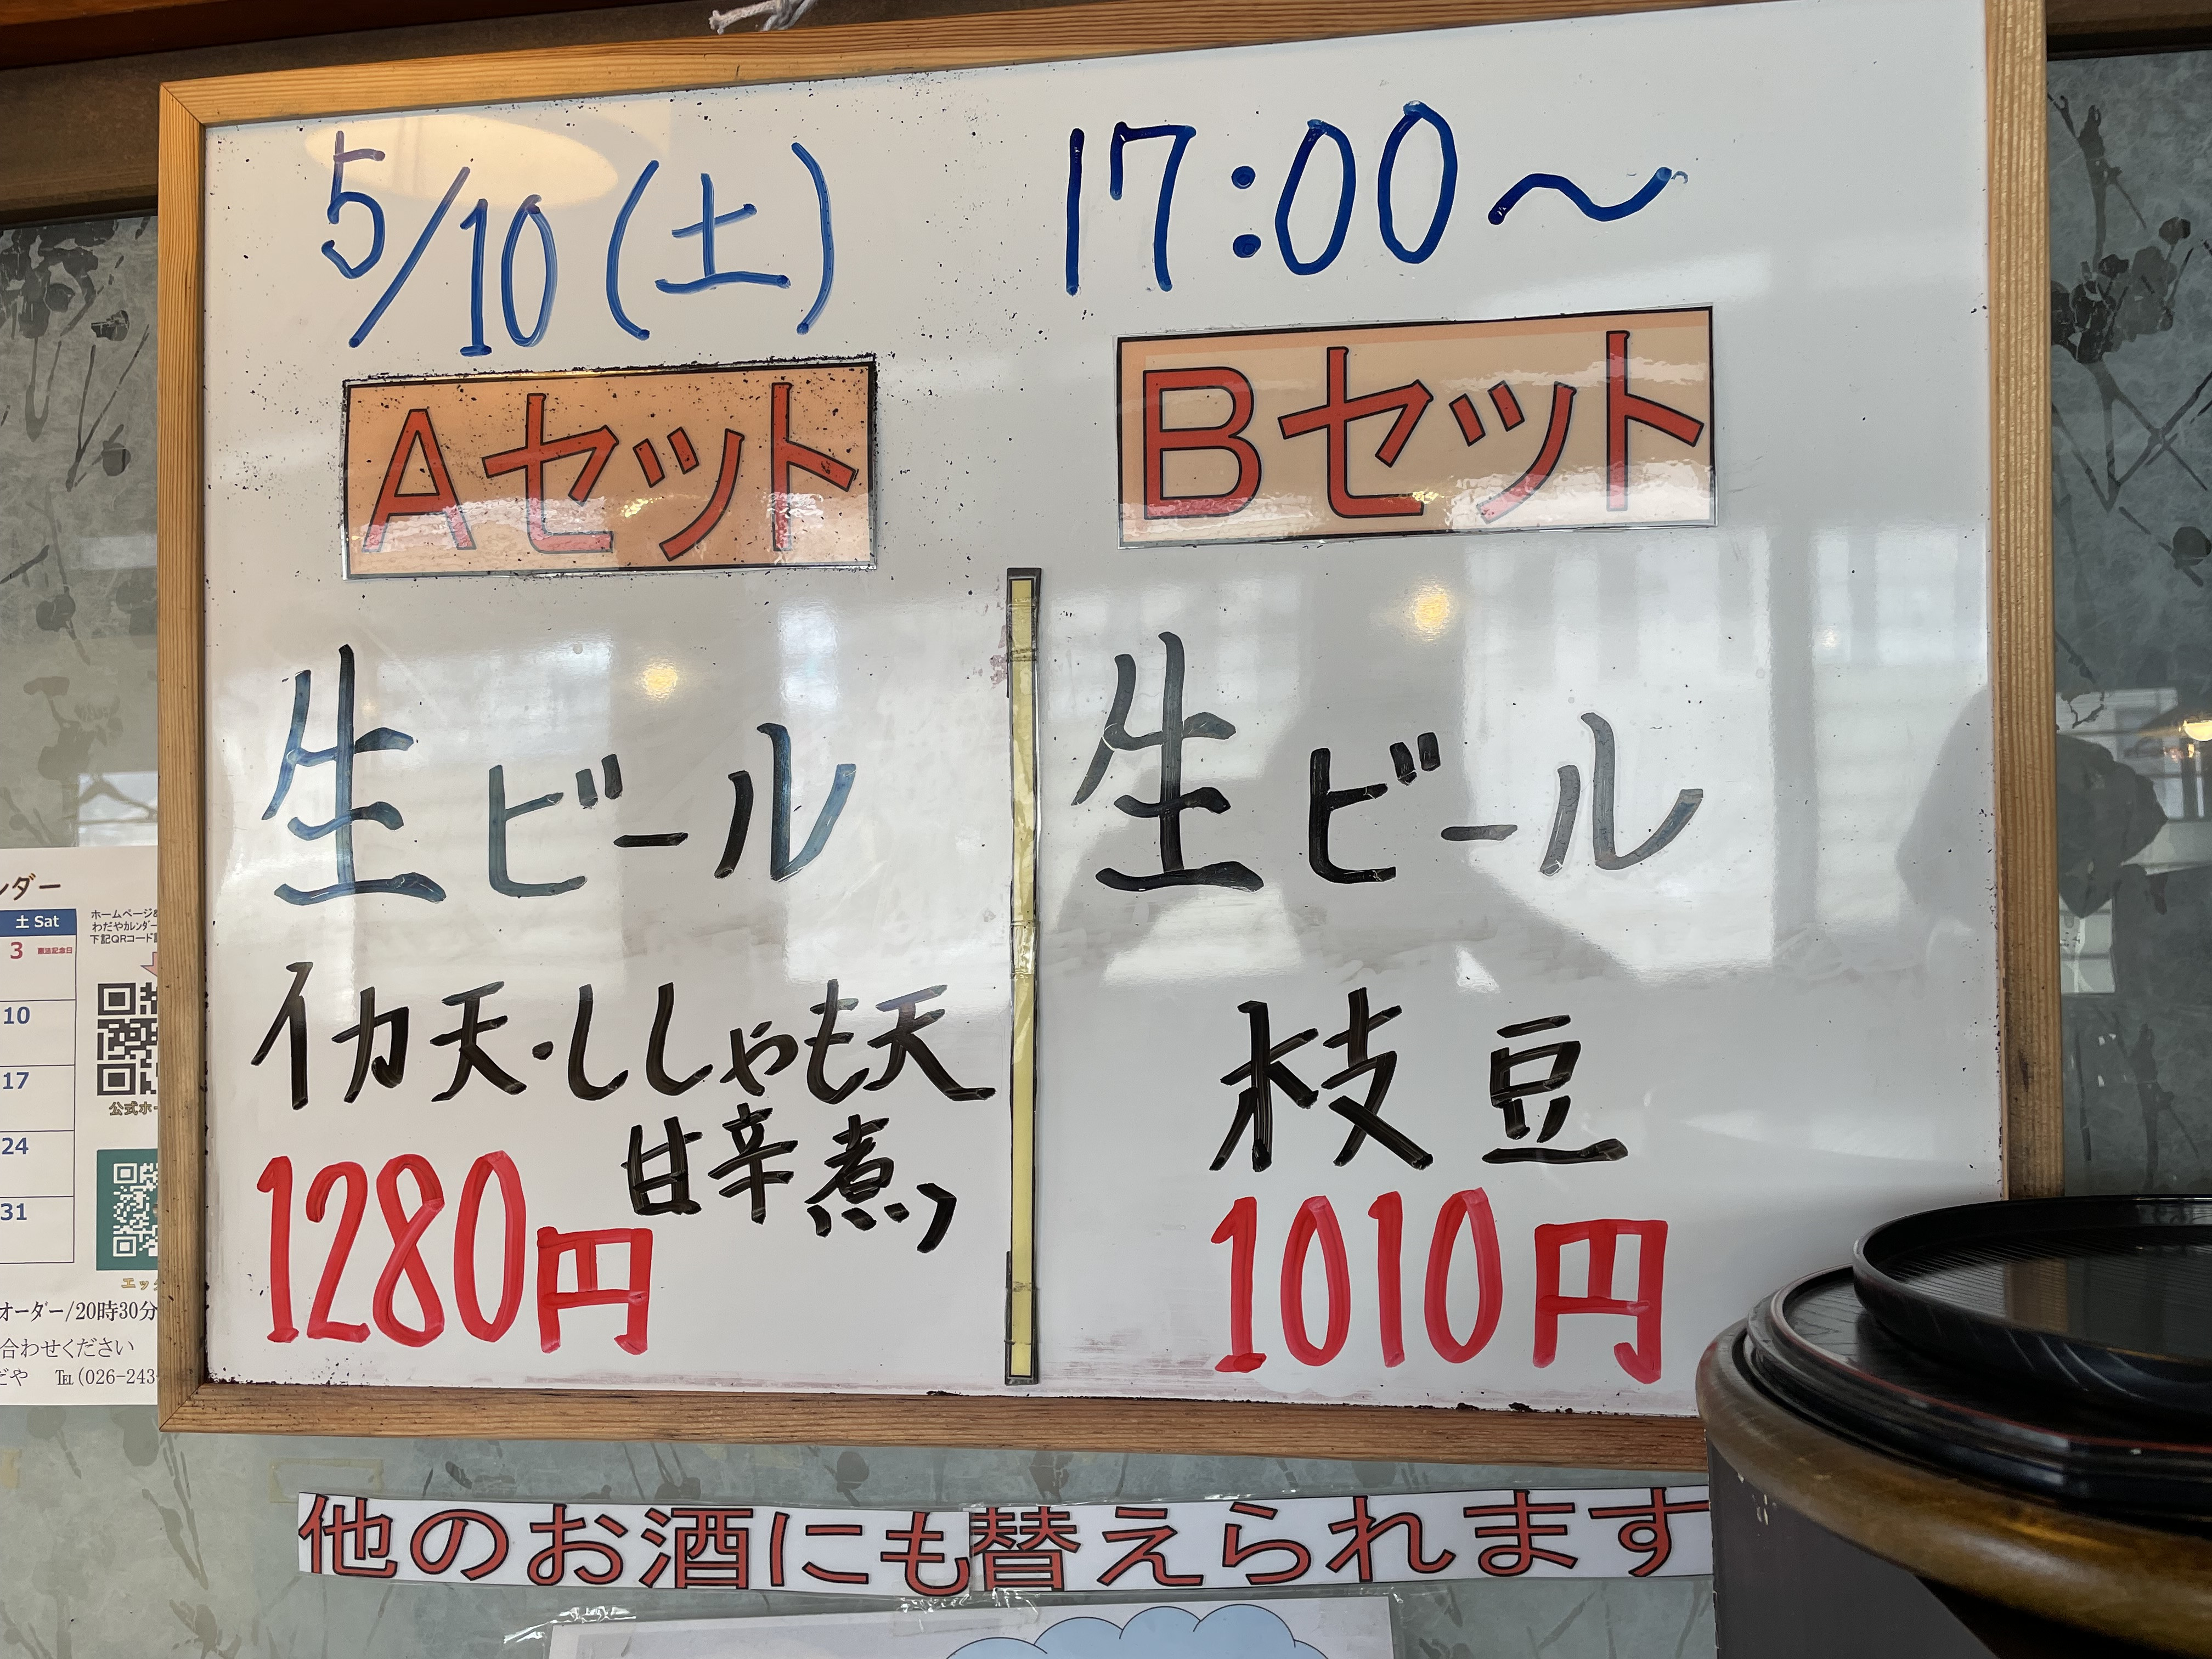 5/10(土) 17:00～
Aセット
生ビール
イカ天・ししゃも天
甘辛煮
1280円
Bセット
生ビール
枝豆
1010円
他のお酒にも替えられます
ンダー
土 Sat
3 憲法記念日
10
17
24
31
ホームページ&
わだやカレンダー
下記QRコード
公式ホー
エッ
オーダー/20時30分
合わせください
だや ℡(026-243-